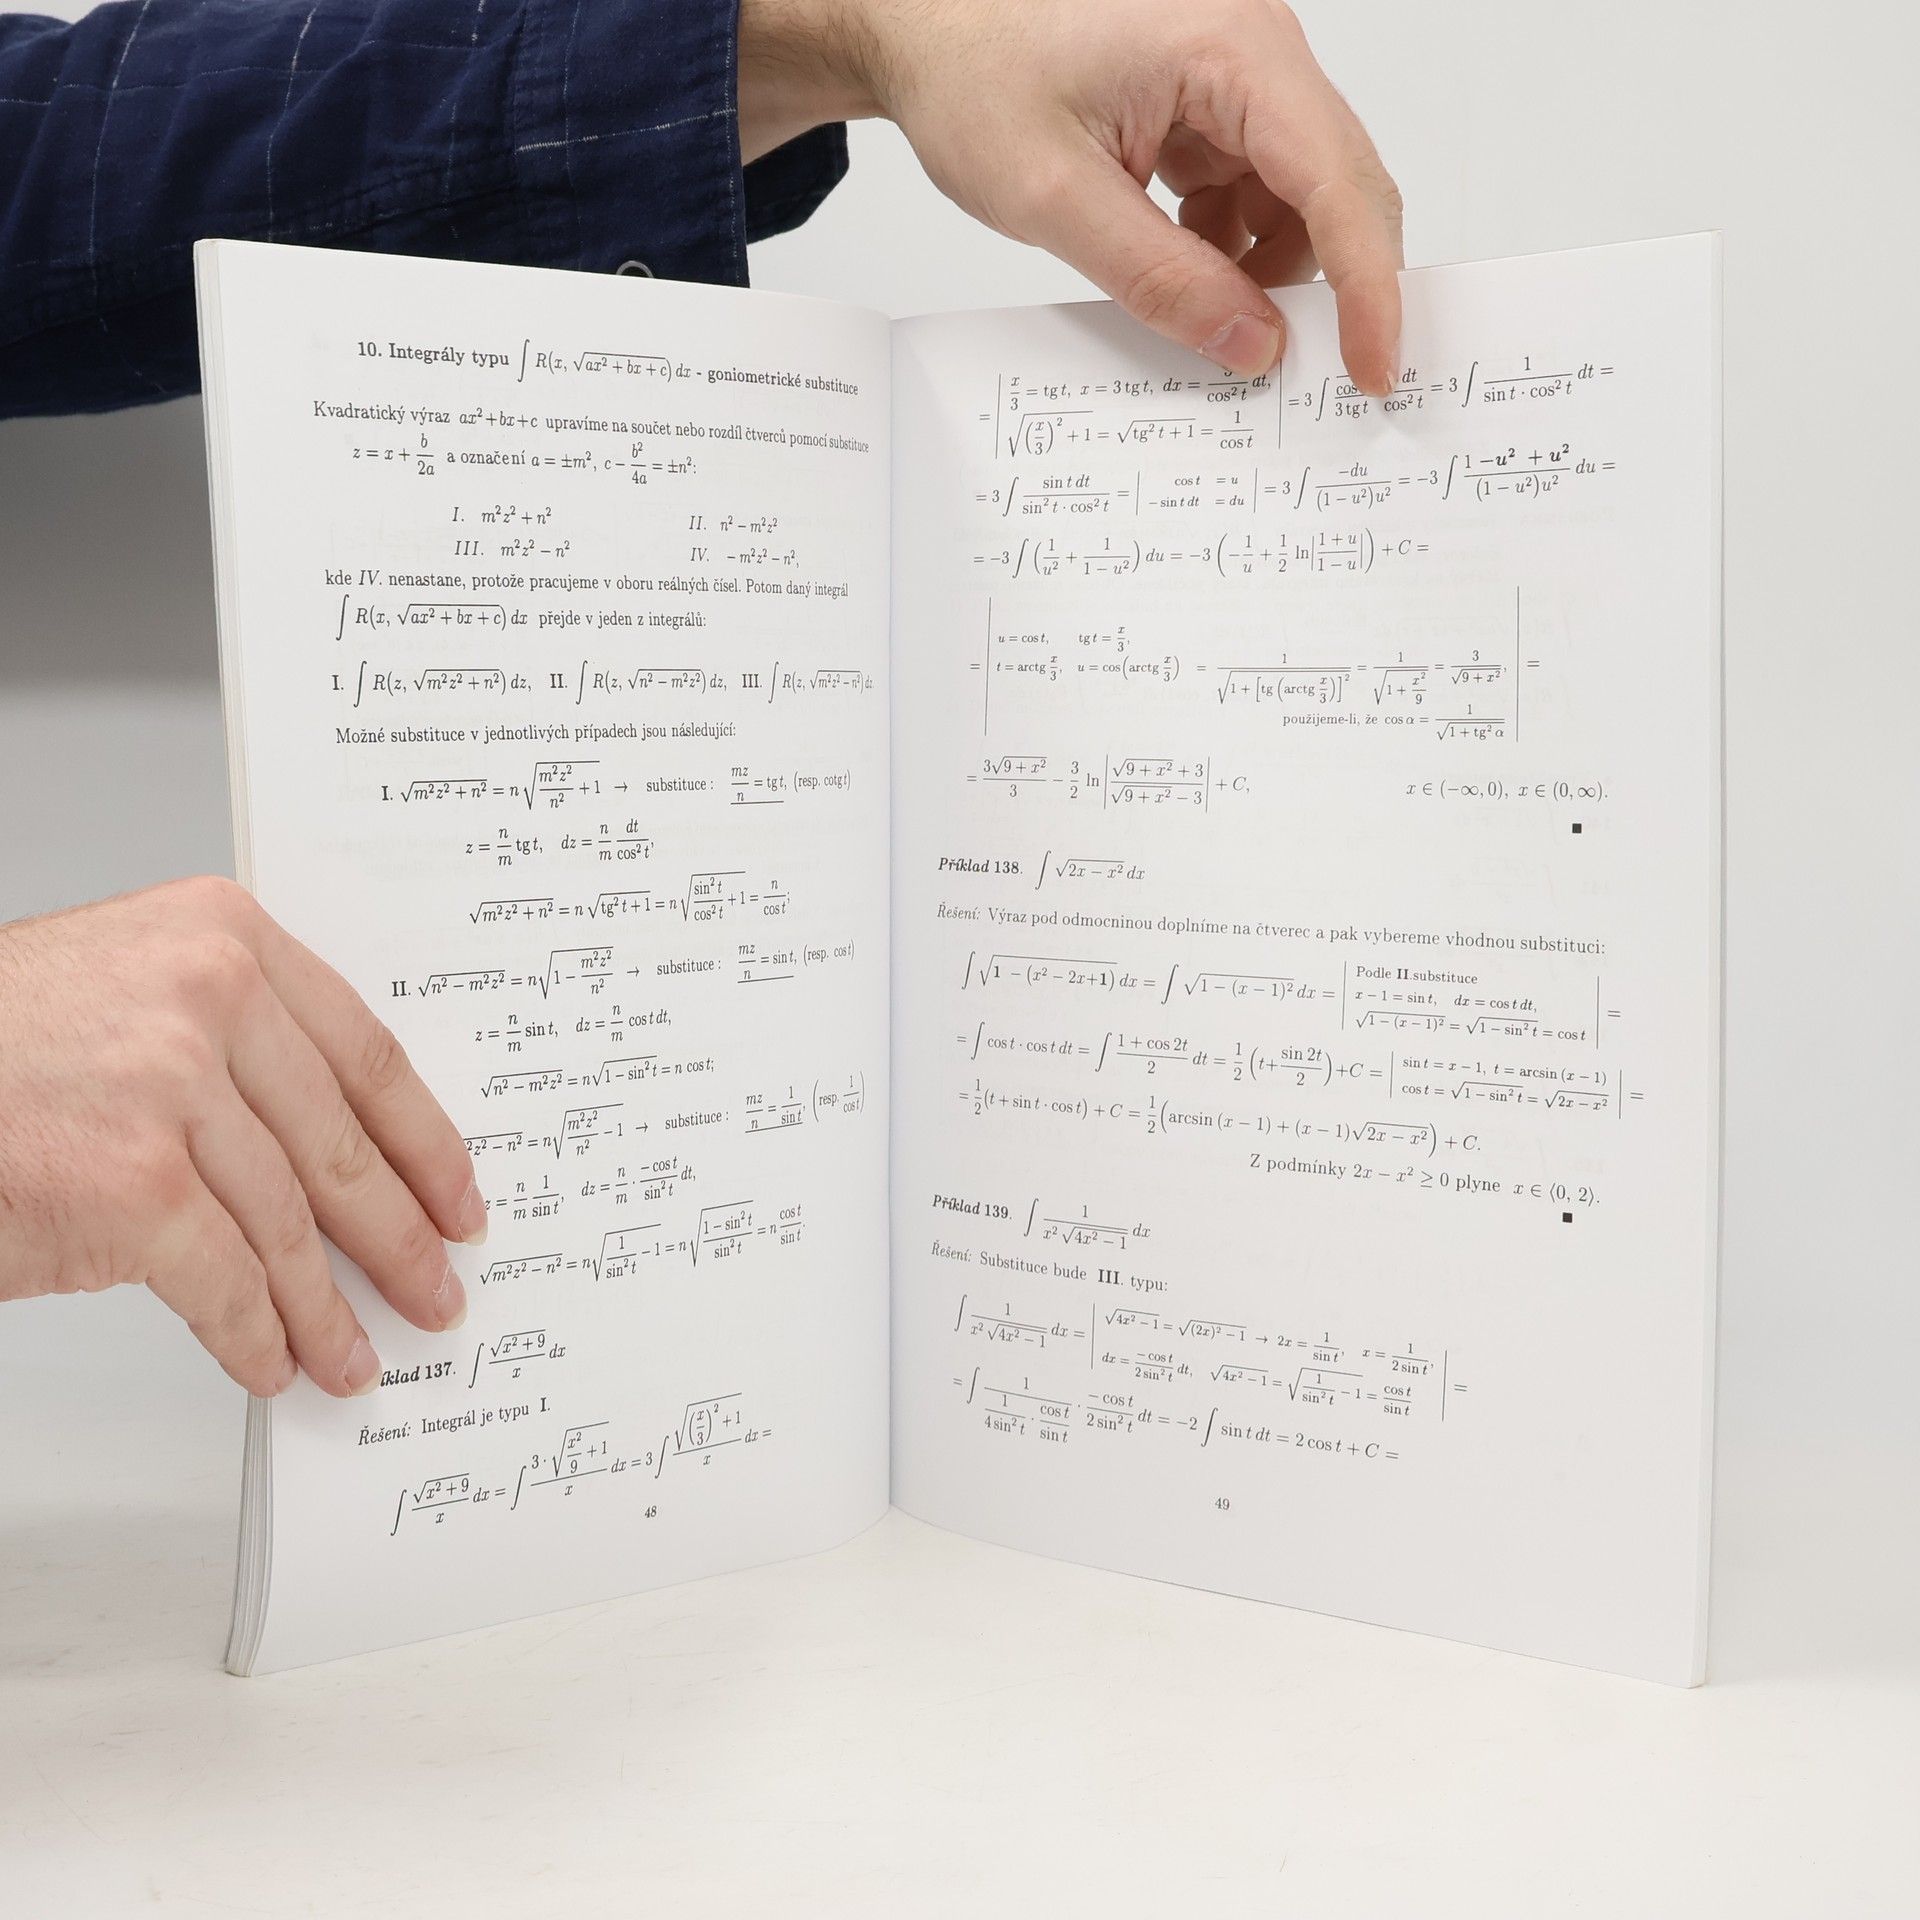 10. Integrály typu ∫ R(x, √(ax² + bx + c)) dx - goniometrické substituce
Kvadratický výraz ax² + bx + c upravíme na součet nebo rozdíl čtverců pomocí substituce
z = x + b/2a a označení a = ±m², c − b²/4a = ±n²:
I. m²z² + n² II. n² − m²z²
III. m²z² − n² IV. − m²z² − n²,
kde IV. nenastane, protože pracujeme v oboru reálných čísel. Potom daný integrál
∫ R(x, √(ax² + bx + c)) dx přejde v jeden z integrálů:
I. ∫ R(z, √(m²z² + n²)) dz, II. ∫ R(z, √(n² − m²z²)) dz, III. ∫ R(z, √(m²z² − n²)) dz.
Možné substituce v jednotlivých případech jsou následující:
I. √(m²z² + n²) = n √(m²z²/n² + 1) → substituce : mz/n = tg t, (resp. cotg t)
z = n/m tg t, dz = n/m dt/cos² t,
√(m²z² + n²) = n √(tg² t + 1) = n √(sin² t/cos² t + 1) = n/cos t;
II. √(n² − m²z²) = n √(1 − m²z²/n²) → substituce : mz/n = sin t, (resp. cos t)
z = n/m sin t, dz = n/m cos t dt,
√(n² − m²z²) = n √(1 − sin² t) = n cos t;
²z² − n² = n √(m²z²/n² − 1) → substituce : mz/n = 1/sin t, (resp. 1/cos t)
z = n/m 1/sin t, dz = n/m · −cos t/sin² t dt,
√(m²z² − n²) = n √(1/sin² t − 1) = n √((1 − sin² t)/sin² t) = n cos t/sin t.
íklad 137. ∫ √(x² + 9)/x dx
Řešení: Integrál je typu I.
∫ √(x² + 9)/x dx = ∫ 3 · √(x²/9 + 1)/x dx = 3 ∫ √((x/3)² + 1)/x dx =
48
= | x/3 = tg t, x = 3 tg t, dx = 3/cos² t dt, | = 3 ∫ cos / 3 tg t dt/cos² t = 3 ∫ 1/(sin t · cos² t) dt =
√((x/3)² + 1) = √(tg² t + 1) = 1/cos t
= 3 ∫ sin t dt/(sin² t · cos² t) = | cos t = u | = 3 ∫ −du/((1 − u²)u²) = −3 ∫ (1 − u² + u²)/((1 − u²)u²) du =
− sin t dt = du
= −3 ∫ (1/u² + 1/(1 − u²)) du = −3 (−1/u + 1/2 ln|(1 + u)/(1 − u)|) + C =
u = cos t, tg t = x/3,
= | t = arctg x/3, u = cos(arctg x/3) = 1/√(1 + [tg (arctg x/3)]²) = 1/√(1 + x²/9) = 3/√(9 + x²), | =
použijeme-li, že cos α = 1/√(1 + tg² α)
= 3√(9 + x²)/3 − 3/2 ln |(√(9 + x²) + 3)/(√(9 + x²) − 3)| + C, x ∈ (−∞, 0), x ∈ (0, ∞).
■
Příklad 138. ∫ √(2x − x²) dx
Řešení: Výraz pod odmocninou doplníme na čtverec a pak vybereme vhodnou substituci:
∫ √(1 − (x² − 2x+1)) dx = ∫ √(1 − (x − 1)²) dx = | Podle II.substituce
x − 1 = sin t, dx = cos t dt,
√(1 − (x − 1)²) = √(1 − sin² t) = cos t | =
= ∫ cos t · cos t dt = ∫ (1 + cos 2t)/2 dt = 1/2 (t + sin 2t/2) + C = | sin t = x − 1, t = arcsin (x − 1)
cos t = √(1 − sin² t) = √(2x − x²) | =
= 1/2 (t + sin t · cos t) + C = 1/2 (arcsin (x − 1) + (x − 1)√(2x − x²)) + C.
Z podmínky 2x − x² ≥ 0 plyne x ∈ ⟨0, 2⟩.
■
Příklad 139. ∫ 1/(x² √(4x² − 1)) dx
Řešení: Substituce bude III. typu:
∫ 1/(x² √(4x² − 1)) dx = | √(4x² − 1) = √((2x)² − 1) → 2x = 1/sin t, x = 1/(2 sin t),
dx = −cos t/(2 sin² t) dt, √(4x² − 1) = √(1/sin² t − 1) = cos t/sin t | =
= ∫ 1/(1/(4 sin² t) · cos t/sin t) · −cos t/(2 sin² t) dt = −2 ∫ sin t dt = 2 cos t + C =
49